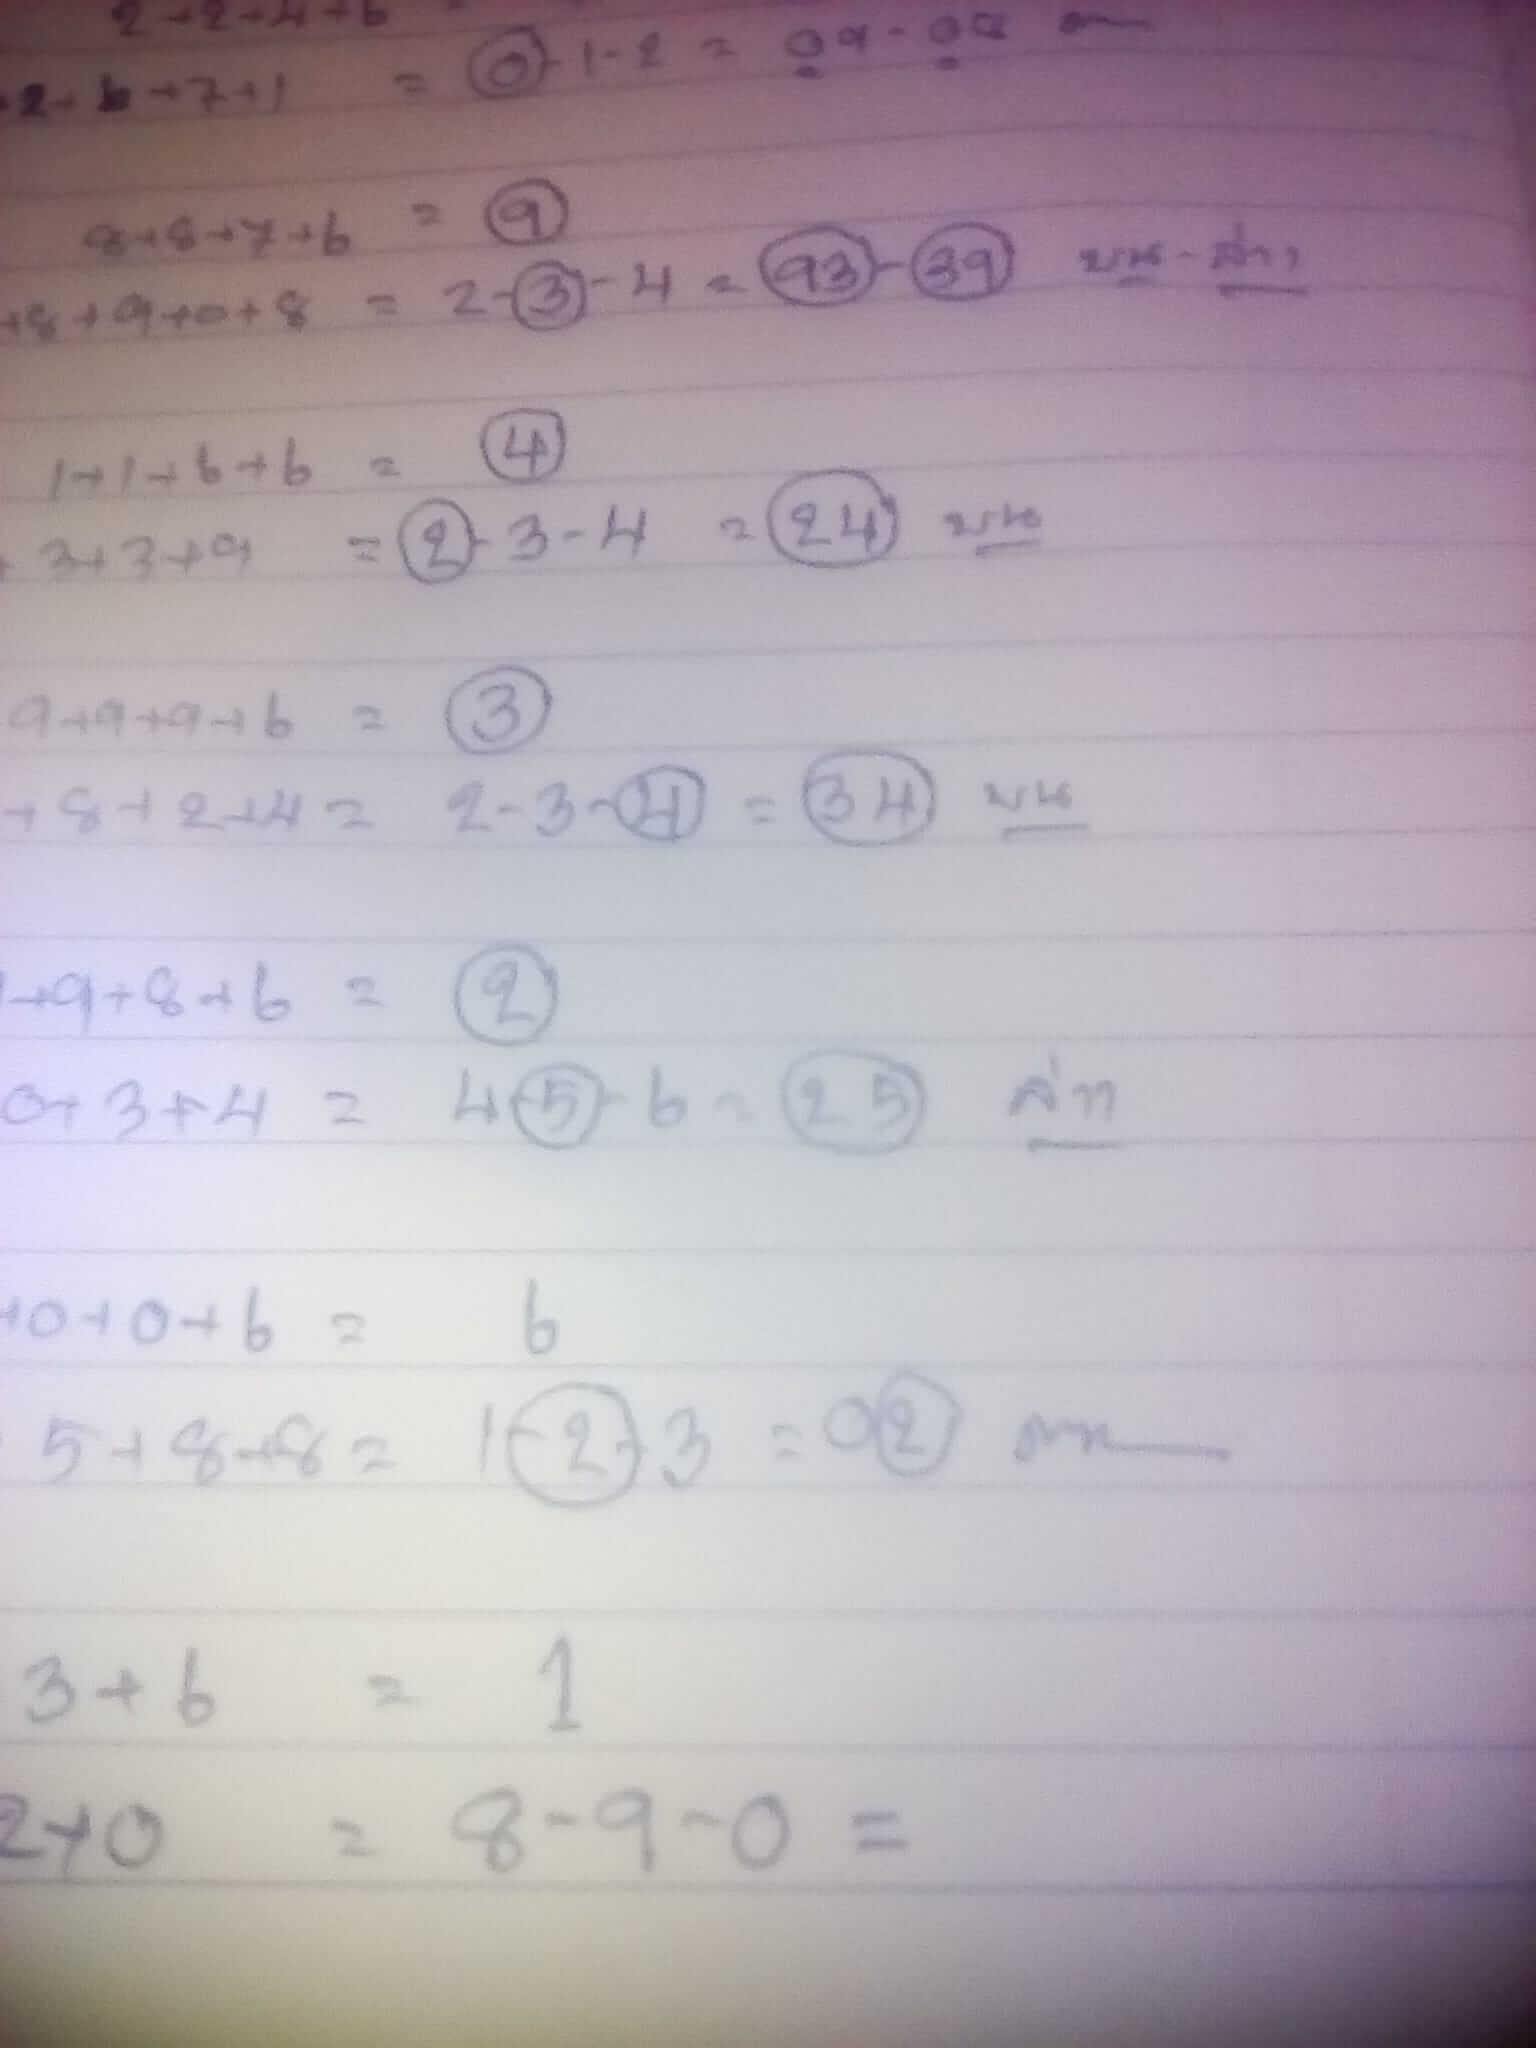 2+2+4+6
+2+6+7+1 = 0-1-2 = 09-
8+8+7+6 = 9
+8+9+0+8 = 2-3-4 = 93-39 บน-ล่าง
1+1+6+6 = 4
+3+3+9 = 2-3-4 = 24 บน
9+9+9+6 = 3
+8+2+4 = 2-3-4 = 34 บน
+9+8+6 = 2
0+3+4 = 4-5-6 = 25 ล่าง
+0+0+6 = 6
5+8+8 = 1-2-3 = 02
3+6 = 1
2+0 = 8-9-0 =